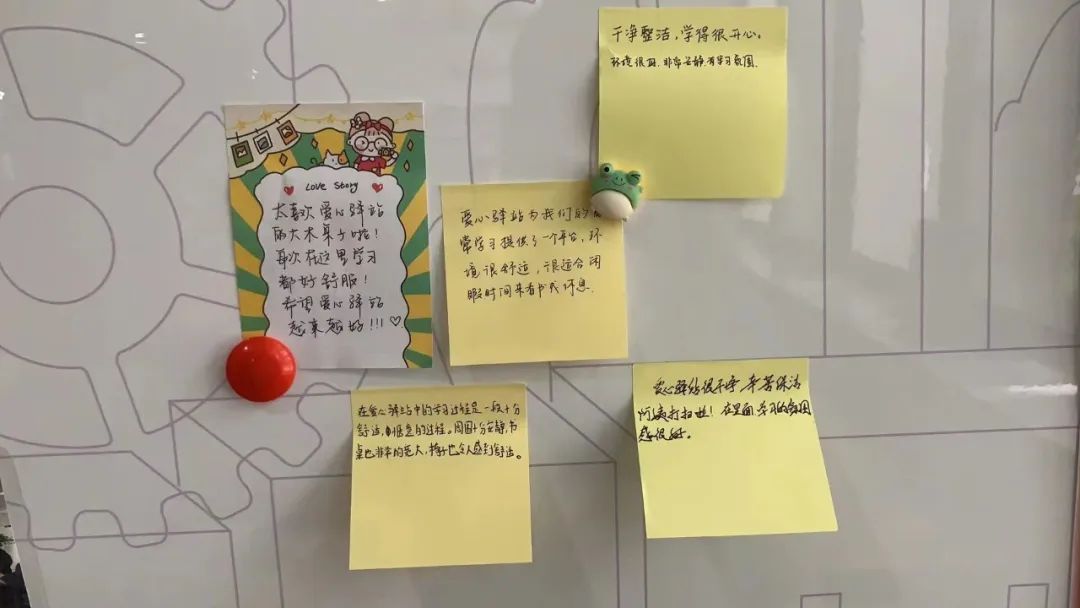 干净整洁，学得很开心。
环境很好，非常安静，有学习氛围。
Love Story
太喜欢爱心驿站
的大木桌子啦！
每次在这里学习
都好舒服！
希望爱心驿站
越来越好!!!♡
爱心驿站为我们的
学习提供了一个平台，环
境很舒适，很适合闲
暇时间来看书或休息.
在爱心驿站中的学习过程是一段十分
舒适,惬意的过程。周围十分安静,书
桌也非常的宽大,椅子也令人感到舒适。
爱心驿站很干净 辛苦保洁
阿姨打扫啦！在里面学习的氛围
感很好。